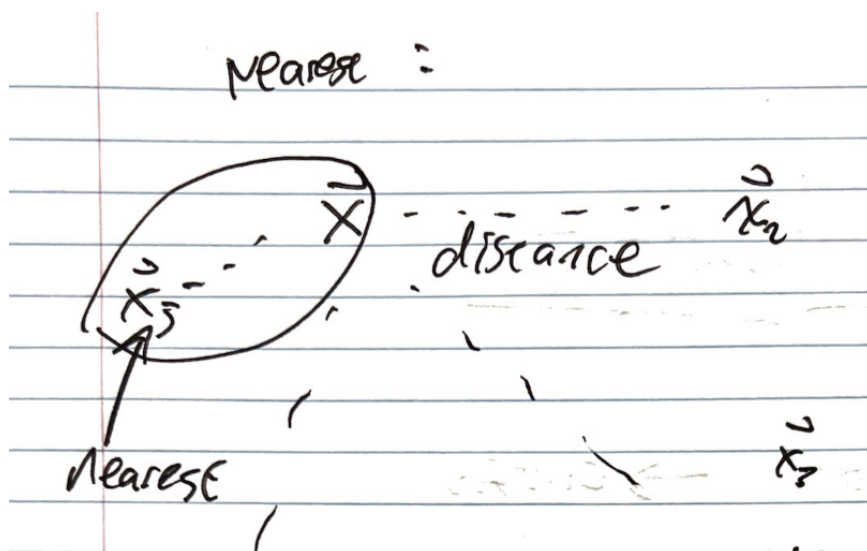 Nearest :
x⃗ x⃗₂
distance
x⃗₅
nearest x⃗₃